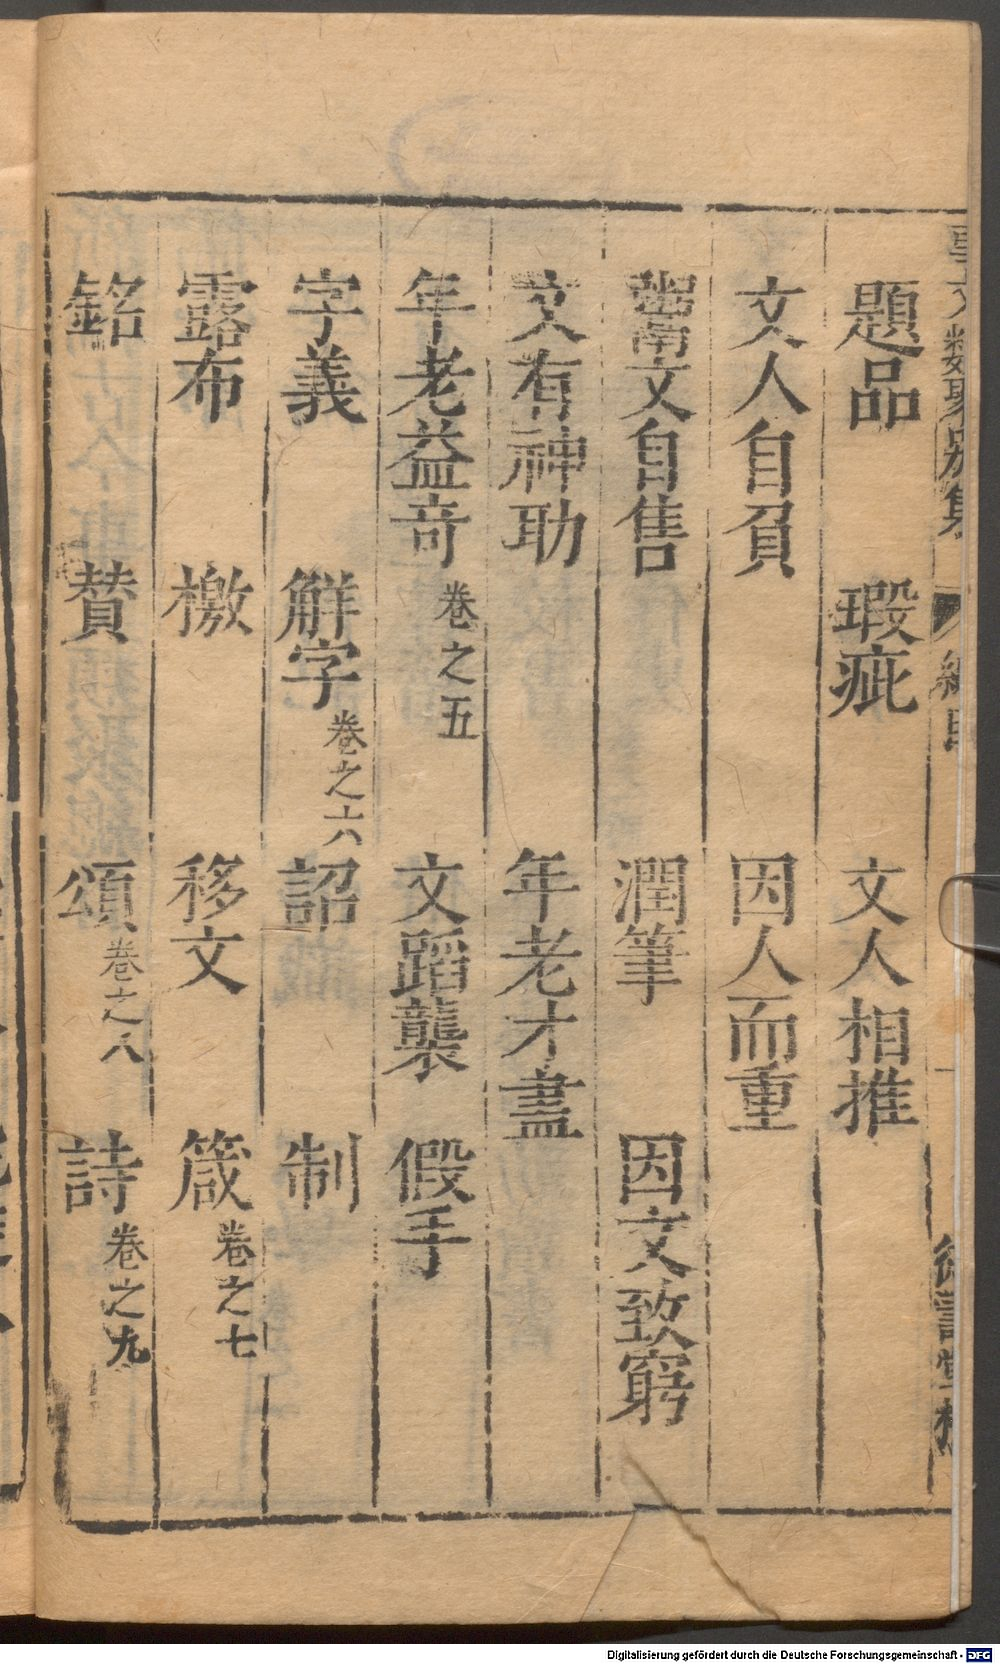 題品　瑕疵　文人相推
文人自負　因人而重
鬻文自售　潤筆　因文致窮
文有神助　年老才盡
年老益奇 卷之五　文蹈襲　假手
字義　觧字 卷之六　詔　制
露布　檄　移文　箴 卷之七
銘　賛　頌 卷之八　詩 卷之九
Digitalisierung gefördert durch die Deutsche Forschungsgemeinschaft - DFG